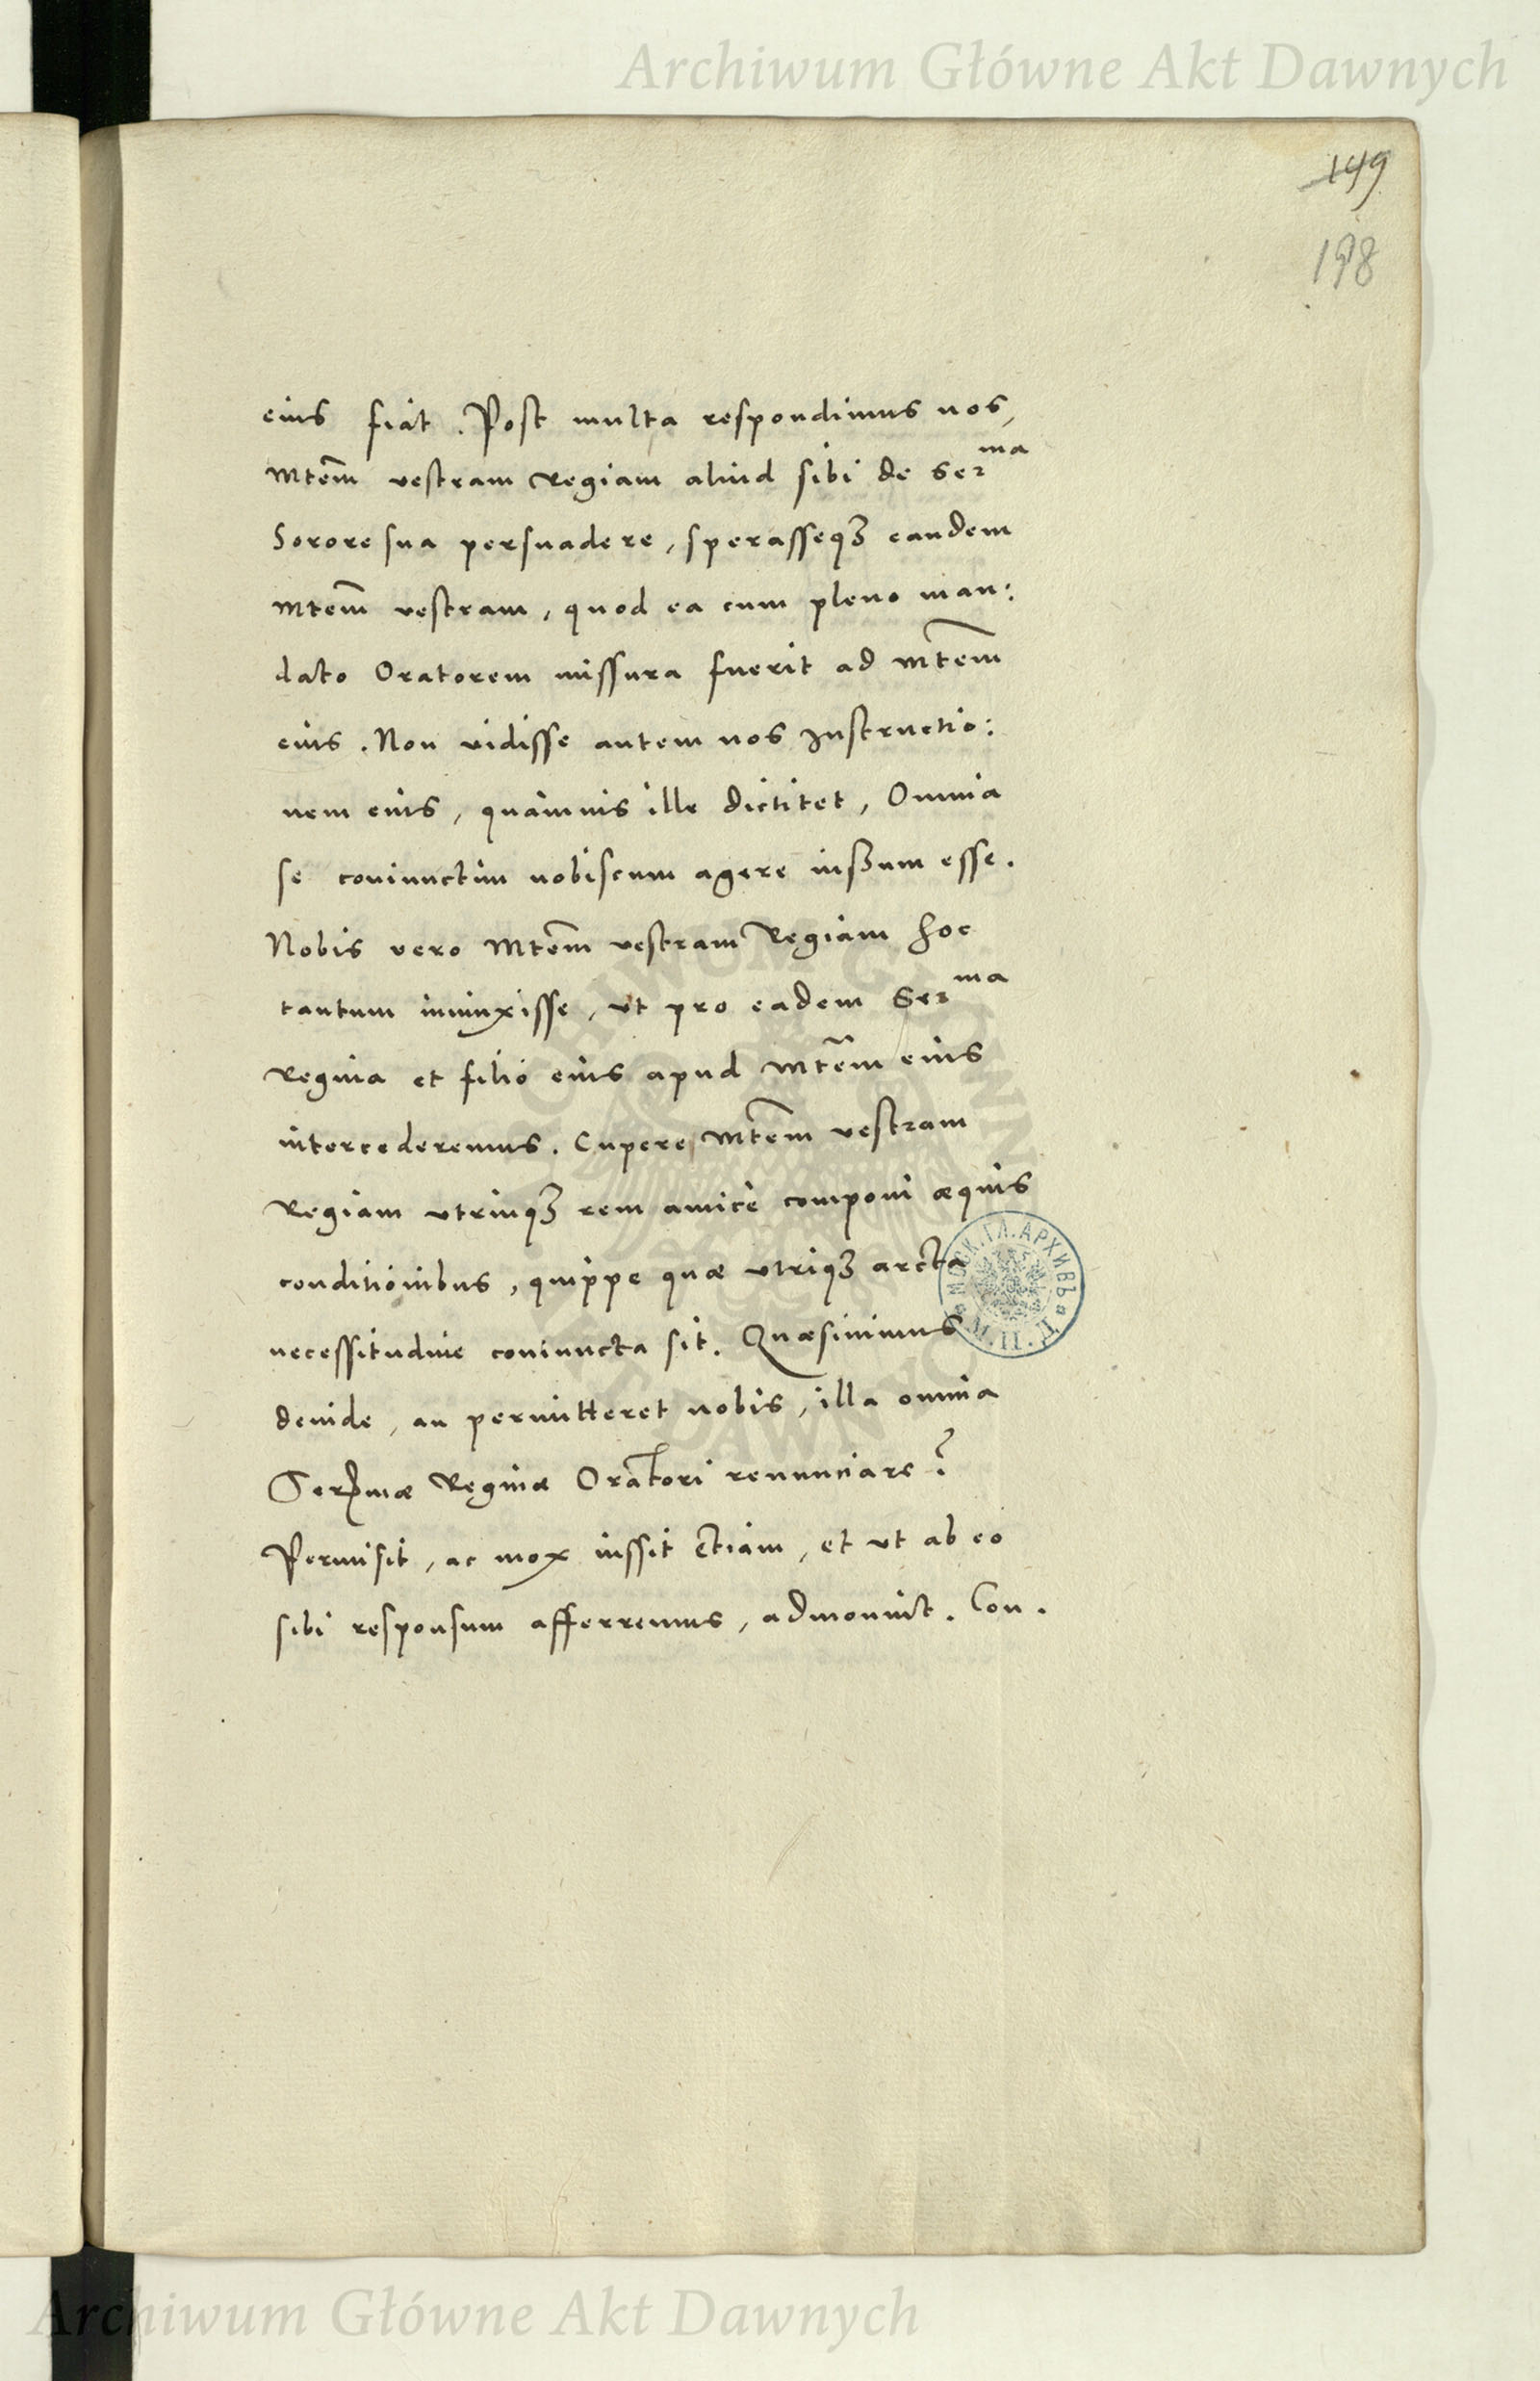 Archiwum Główne Akt Dawnych
149
198
eius fiat. Post multa respondimus nos,
Mtem̄ vestram Regiam aliud sibi de Serᵐᵃ
Sorore sua persuadere, sperasseqꝫ eandem
Mtem̄ vestram, quod ea cum pleno man:
dato Oratorem missura fuerit ad Mtem̄
eius. Non vidisse autem nos Instructio:
nem eius, quamuis ille dictitet, Omnia
se coniunctim nobiscum agere iußum esse.
Nobis vero Mtem̄ vestram Regiam hoc
tantum iniunxisse, ut pro eadem Serᵐᵃ
Regina et filio eius apud Mtem̄ eius
intercederemus. Cupere Mtem̄ vestram
Regiam utrinqꝫ rem amice componi æquis
conditionibus, quippe quæ utriqꝫ arcta
necessitudine coniuncta sit. Quæsiuimus
deinde, an permitteret nobis, illa omnia
Serꝫmæ Reginæ Oratori renunciare?
Permisit, ac mox iussit etiam, et ut ab eo
sibi responsum afferremus, admonuit. Con.
МОСК. ГЛ. АРХИВЪ
Archiwum Główne Akt Dawnych